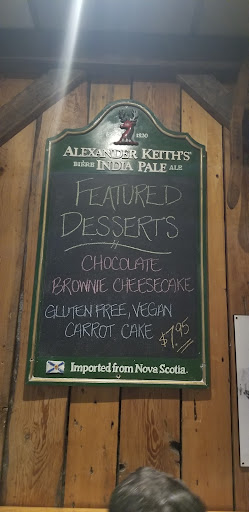 1820
ALEXANDER KEITH'S
BIÈRE INDIA PALE ALE
FEATURED
DESSERTS
CHOCOLATE
BROWNIE CHEESECAKE
GLUTEN FREE, VEGAN
CARROT CAKE $7.95
Imported from Nova Scotia.